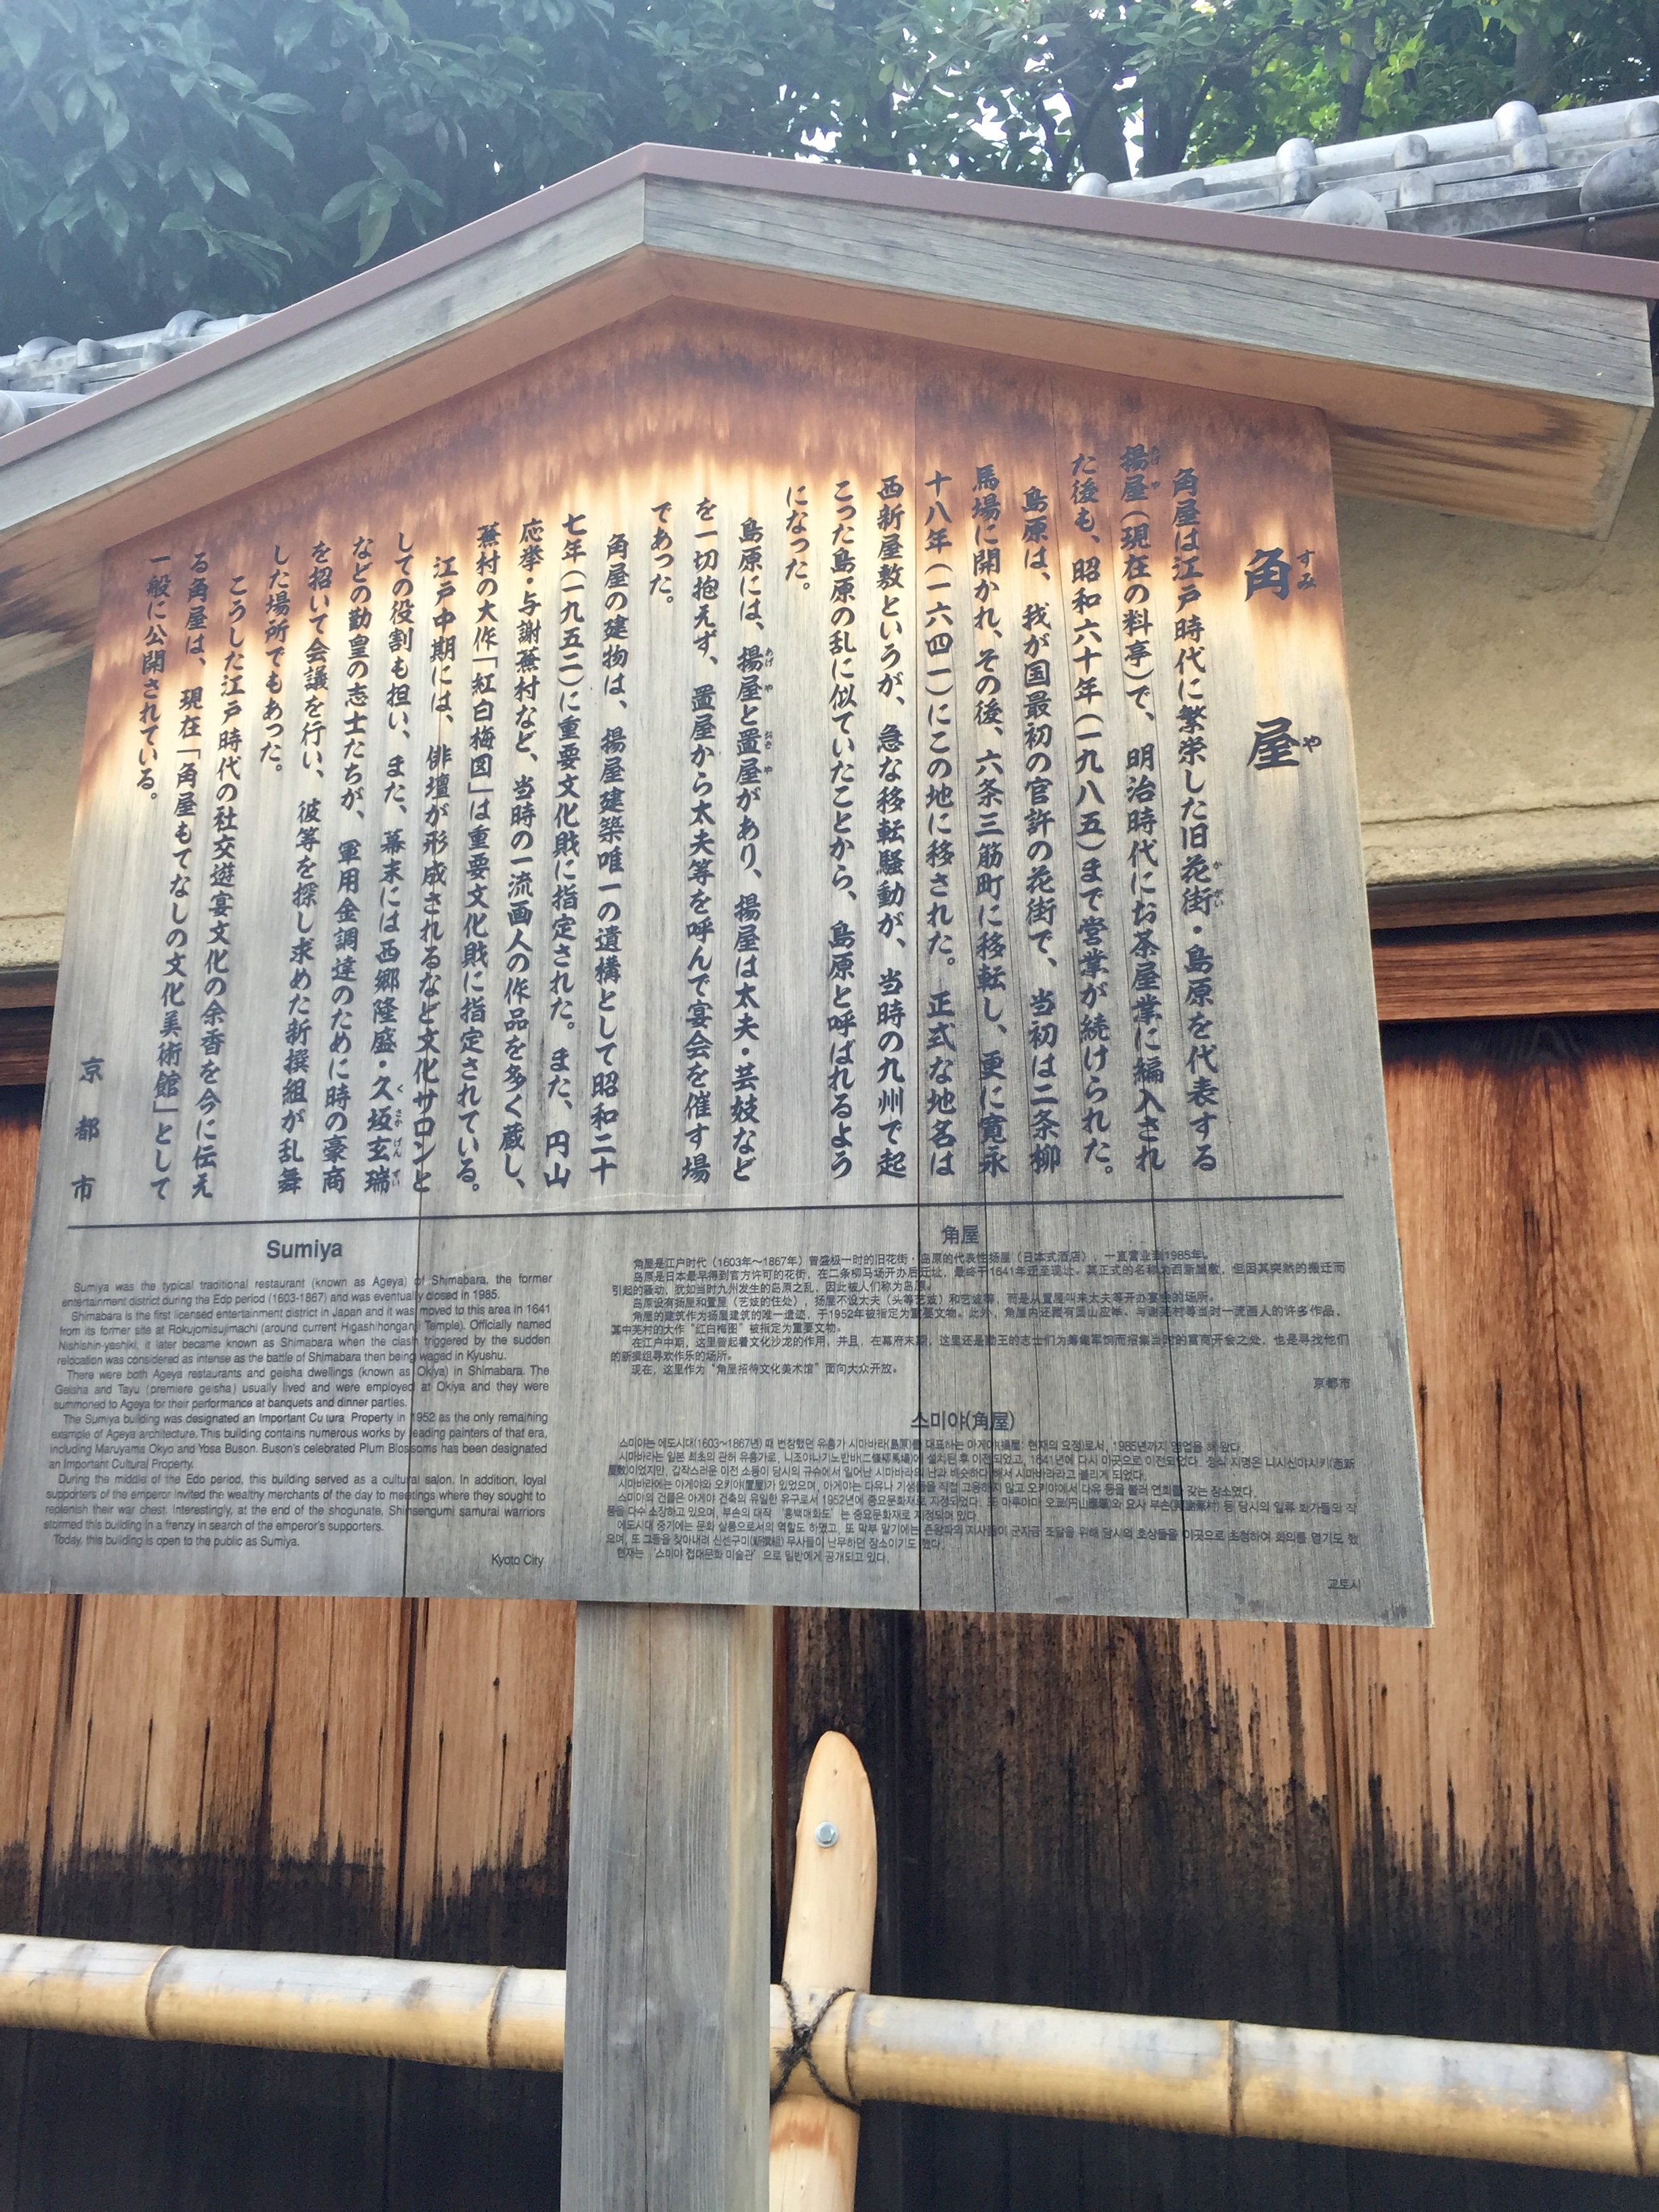 角屋
すみや
角屋は江戸時代に繁栄した旧花街・島原を代表する
揚屋(現在の料亭)で、明治時代にお茶屋業に編入され
た後も、昭和六十年(一九八五)まで営業が続けられた。
島原は、我が国最初の官許の花街で、当初は二条柳
馬場に開かれ、その後、六条三筋町に移転し、更に寛永
十八年(一六四一)にこの地に移された。正式な地名は
西新屋敷というが、急な移転騒動が、当時の九州で起
こった島原の乱に似ていたことから、島原と呼ばれるよう
になった。
島原には、揚屋と置屋があり、揚屋は太夫・芸妓など
を一切抱えず、置屋から太夫等を呼んで宴会を催す場
であった。
角屋の建物は、揚屋建築唯一の遺構として昭和二十
七年(一九五二)に重要文化財に指定された。また、円山
応挙・与謝蕪村など、当時の一流画人の作品を多く蔵し、
蕪村の大作「紅白梅図」は重要文化財に指定されている。
江戸中期には、俳壇が形成されるなど文化サロンと
しての役割も担い、また、幕末には西郷隆盛・久坂玄瑞
などの勤皇の志士たちが、軍用金調達のために時の豪商
を招いて会議を行い、彼等を探し求めた新撰組が乱舞
した場所でもあった。
こうした江戸時代の社交遊宴文化の余香を今に伝え
る角屋は、現在「角屋もてなしの文化美術館」として
一般に公開されている。
京都市
Sumiya
Sumiya was the typical traditional restaurant (known as Ageya) of Shimabara, the former
entertainment district during the Edo period (1603-1867) and was eventually closed in 1985.
Shimabara is the first licensed entertainment district in Japan and it was moved to this area in 1641
from its former site at Rokujomisujimachi (around current Higashihonganji Temple). Officially named
Nishishin-yashiki, it later became known as Shimabara when the clash triggered by the sudden
relocation was considered as intense as the battle of Shimabara then being waged in Kyushu.
There were both Ageya restaurants and geisha dwellings (known as Okiya) in Shimabara. The
Geisha and Tayu (premiere geisha) usually lived and were employed at Okiya and they were
summoned to Ageya for their performance at banquets and dinner parties.
The Sumiya building was designated an Important Cultural Property in 1952 as the only remaining
example of Ageya architecture. This building contains numerous works by leading painters of that era,
including Maruyama Okyo and Yosa Buson. Buson's celebrated Plum Blossoms has been designated
an Important Cultural Property.
During the middle of the Edo period, this building served as a cultural salon. In addition, loyal
supporters of the emperor invited the wealthy merchants of the day to meetings where they sought to
replenish their war chest. Interestingly, at the end of the shogunate, Shinsengumi samurai warriors
stormed this building in a frenzy in search of the emperor's supporters.
Today, this building is open to the public as Sumiya.
Kyoto City
角屋
角屋是江户时代(1603年~1867年)曾盛极一时的旧花街·岛原的代表性扬屋(日本式酒店),一直营业到1985年。
岛原是日本最早得到官方许可的花街,在二条柳马场开办后迁址,最终于1641年迁至现址。其正式的名称为西新屋敷,但因其突然的搬迁而
引起的骚动,犹如当时九州发生的岛原之乱,因此被人们称为岛原。
岛原设有扬屋和置屋(艺妓的住处),扬屋不设太夫(头等艺妓)和艺妓等,而是从置屋叫来太夫等开办宴会的场所。
角屋的建筑作为扬屋建筑的唯一遗迹,于1952年被指定为重要文物。此外,角屋内还藏有圆山应举、与谢芜村等当时一流画人的许多作品,
其中芜村的大作“红白梅图”被指定为重要文物。
在江户中期,这里曾起着文化沙龙的作用,并且,在幕府末期,这里还是勤王的志士们为筹集军饷而招集当时的富商开会之处,也是寻找他们
的新撰组寻欢作乐的场所。
现在,这里作为“角屋招待文化美术馆”面向大众开放。
京都市
스미야(角屋)
스미야는 에도시대(1603~1867년) 때 번창했던 유흥가 시마바라(島原)를 대표하는 아게야(揚屋: 현재의 요정)로서, 1985년까지 영업을 해 왔다.
시마바라는 일본 최초의 관허 유흥가로, 니조야나기노반바(二條柳馬場)에 설치된 후 이전되었고, 1641년에 다시 이곳으로 이전되었다. 정식 지명은 니시신야시키(西新
屋敷)이었지만, 갑작스러운 이전 소동이 당시의 규슈에서 일어난 시마바라의 난과 비슷하다 해서 시마바라라고 불리게 되었다.
시마바라에는 아게야와 오키야(置屋)가 있었으며, 아게야는 다유나 기생들을 직접 고용하지 않고 오키야에서 다유 등을 불러 연회를 갖는 장소였다.
스미야의 건물은 아게야 건축의 유일한 유구로서 1952년에 중요문화재로 지정되었다. 또 마루야마 오쿄(円山應擧)와 요사 부손(與謝蕪村) 등 당시의 일류 화가들의 작
품을 다수 소장하고 있으며, 부손의 대작 '홍백매화도'는 중요문화재로 지정되어 있다.
에도시대 중기에는 문화 살롱으로서의 역할도 하였고, 또 막부 말기에는 존왕파의 지사들이 군자금 조달을 위해 당시의 호상들을 이곳으로 초청하여 회의를 열기도 했
으며, 또 그들을 찾아내려 신센구미(新撰組) 무사들이 난무하던 장소이기도 했다.
현재는 '스미야 접대문화 미술관'으로 일반에게 공개되고 있다.
교토시